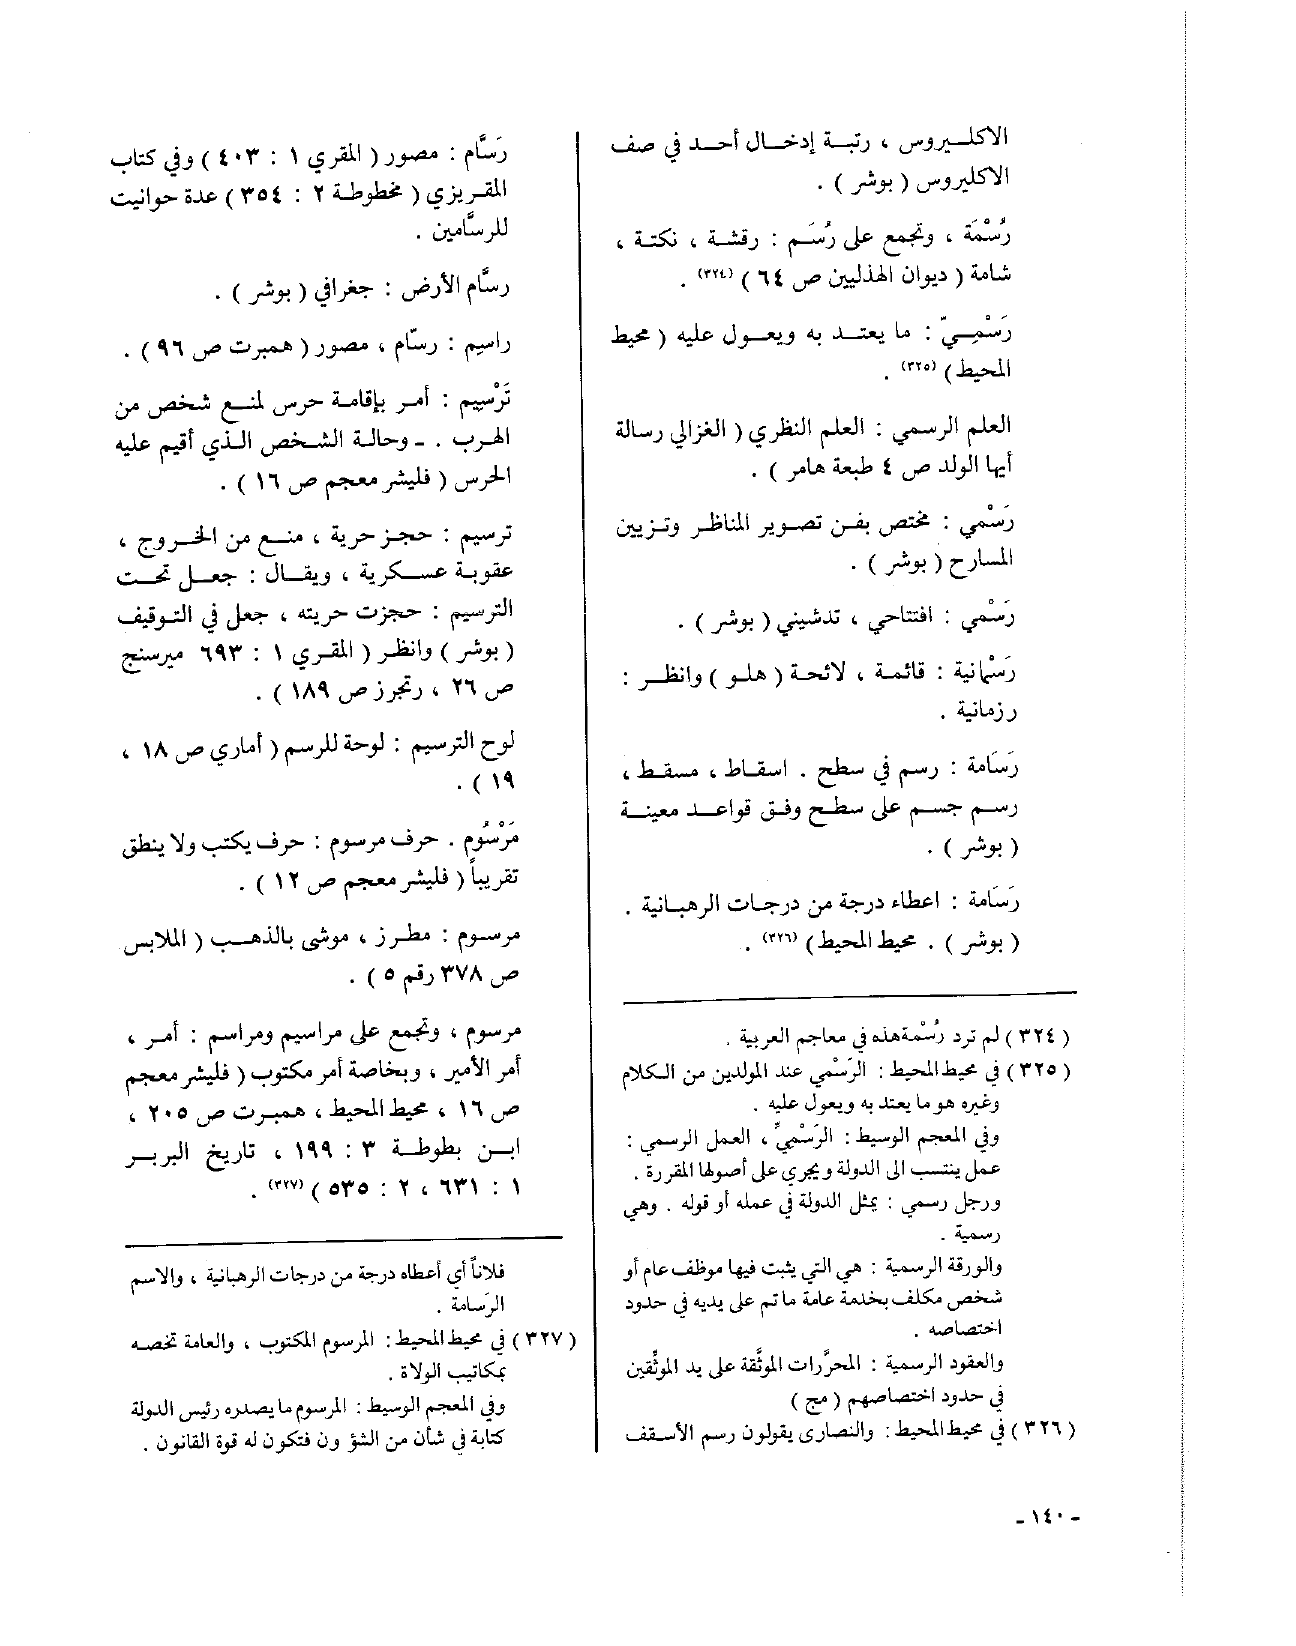 الاكليروس ، رتبة إدخال أحد في صف
الاكليروس ( بوشر ) .
رُسْمَة ، وتجمع على رُسَم : رقشة ، نكتة ،
شامة ( ديوان الهذليين ص ٦٤ ) (٣٢٤) .
رَسْمِيّ : ما يعتد به ويعول عليه ( محيط
المحيط ) (٣٢٥) .
العلم الرسمي : العلم النظري ( الغزالي رسالة
أيها الولد ص ٤ طبعة هامر ) .
رَسْمي : مختص بفن تصوير المناظر وتزيين
المسارح ( بوشر ) .
رَسْمي : افتتاحي ، تدشيني ( بوشر ) .
رَسْمانية : قائمة ، لائحة ( هلو ) وانظر :
رزمانية .
رَسَامة : رسم في سطح . اسقاط ، مسقط ،
رسم جسم على سطح وفق قواعد معينة
( بوشر ) .
رَسَامة : اعطاء درجة من درجات الرهبانية .
( بوشر ) . محيط المحيط ) (٣٢٦) .
( ٣٢٤ ) لم ترد رُسْمة هذه في معاجم العربية .
( ٣٢٥ ) في محيط المحيط : الرَسْمي عند المولدين من الكلام
وغيره هو ما يعتد به ويعول عليه .
وفي المعجم الوسيط : الرَسْمِيُّ ، العمل الرسمي :
عمل ينتسب الى الدولة ويجري على أصولها المقررة .
ورجل رسمي : يمثل الدولة في عمله أو قوله . وهي
رسمية .
والورقة الرسمية : هي التي يثبت فيها موظف عام أو
شخص مكلف بخدمة عامة ما تم على يديه في حدود
اختصاصه .
والعقود الرسمية : المحرَّرات الموثَّقة على يد الموثِّقين
في حدود اختصاصهم ( مج )
( ٣٢٦ ) في محيط المحيط : والنصارى يقولون رسم الأسقف
رَسَّام : مصور ( المقري ١ : ٤٠٣ ) وفي كتاب
المقريزي ( مخطوطة ٢ : ٣٥٤ ) عدة حوانيت
للرسَّامين .
رسَّام الأرض : جغرافي ( بوشر ) .
راسيم : رسّام ، مصور ( همبرت ص ٩٦ ) .
تَرْسيم : أمر بإقامة حرس لمنع شخص من
الهرب . ـ وحالة الشخص الذي أقيم عليه
الحرس ( فليشر معجم ص ١٦ ) .
ترسيم : حجز حرية ، منع من الخروج ،
عقوبة عسكرية ، ويقال : جعل تحت
الترسيم : حجزت حريته ، جعل في التوقيف
( بوشر ) وانظر ( المقري ١ : ٦٩٣ ميرسنج
ص ٢٦ ، رتجرز ص ١٨٩ ) .
لوح الترسيم : لوحة للرسم ( أماري ص ١٨ ،
١٩ ) .
مَرْسُوم . حرف مرسوم : حرف يكتب ولا ينطق
تقريباً ( فليشر معجم ص ١٢ ) .
مرسوم : مطرز ، موشى بالذهب ( الملابس
ص ٣٧٨ رقم ٥ ) .
مرسوم ، وتجمع على مراسيم ومراسم : أمر ،
أمر الأمير ، وبخاصة أمر مكتوب ( فليشر معجم
ص ١٦ ، محيط المحيط ، همبرت ص ٢٠٥ ،
ابن بطوطة ٣ : ١٩٩ ، تاريخ البربر
١ : ٦٣١ ، ٢ : ٥٣٥ ) (٣٢٧) .
فلاناً أي أعطاه درجة من درجات الرهبانية ، والاسم
الرَسامة .
( ٣٢٧ ) في محيط المحيط : المرسوم المكتوب ، والعامة تخصه
بمكاتيب الولاة .
وفي المعجم الوسيط : المرسوم ما يصدره رئيس الدولة
كتابة في شأن من الشؤون فتكون له قوة القانون .
- ١٤٠ -